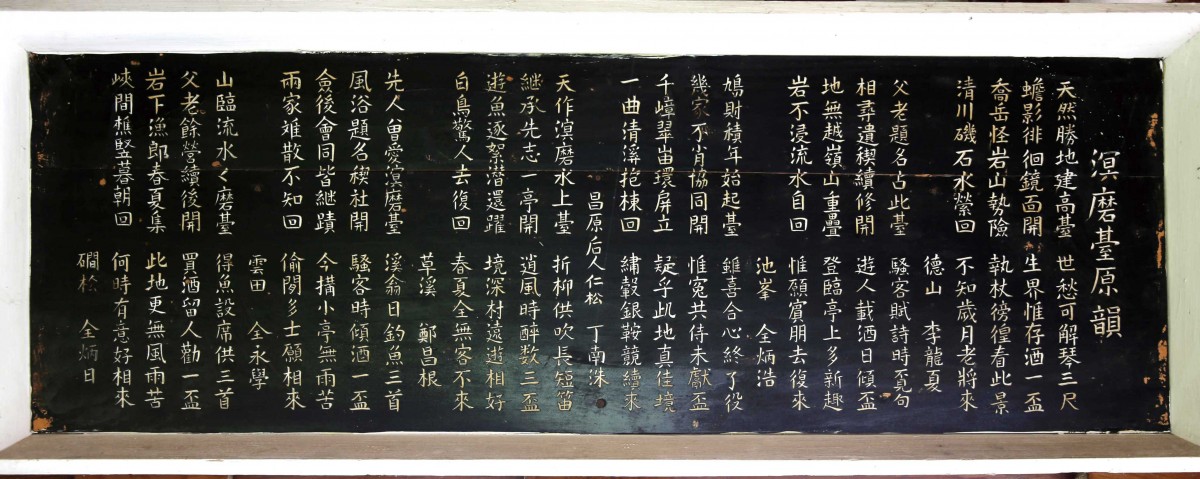 溟磨臺原韻
天然勝地建高臺 世愁可解琴三尺
蟾影徘徊鏡面開 生界惟存酒一盃
喬岳怪岩山勢險 執杖徬徨看此景
清川磯石水縈回 不知歲月老將來
德山 李龍夏
父老題名占此臺 騷客賦詩時覔句
相尋遺稧續修開 遊人載酒日傾盃
地無越嶺山重疊 登臨亭上多新趣
岩不浸流水自回 惟願賓朋去復來
池峯 全炳浩
鳩財積年始起臺 雖喜合心終了役
幾家不肖協同開 惟冤共侍未獻盃
千嶂翠 環屏立 疑乎此地真佳境
一曲清溪抱棟回 繡轂銀鞍競續來
昌原后人仁松 丁南洙
天作溟磨水上臺 折柳供吹長短笛
継承先志一亭開 逍風時醉数三盃
遊魚逐絮潛還躍 境深村遠遊相好
白鳥驚人去復回 春夏全無客不來
草溪 鄭昌根
先人曽愛溟磨臺 溪翁日釣魚三首
風浴題名稧社開 騷客時傾酒一盃
會後會同皆継蹟 今搆小亭無雨苦
兩家难散不知回 偷閒多士願相來
雲田 全永學
山臨流水く磨臺 得魚設席供三首
父老餘營續後開 買酒留人勸一盃
岩下漁郎春夏集 此地更無風雨苦
峽間樵竪暮朝回 何時有意好相來
磵松 全炳日